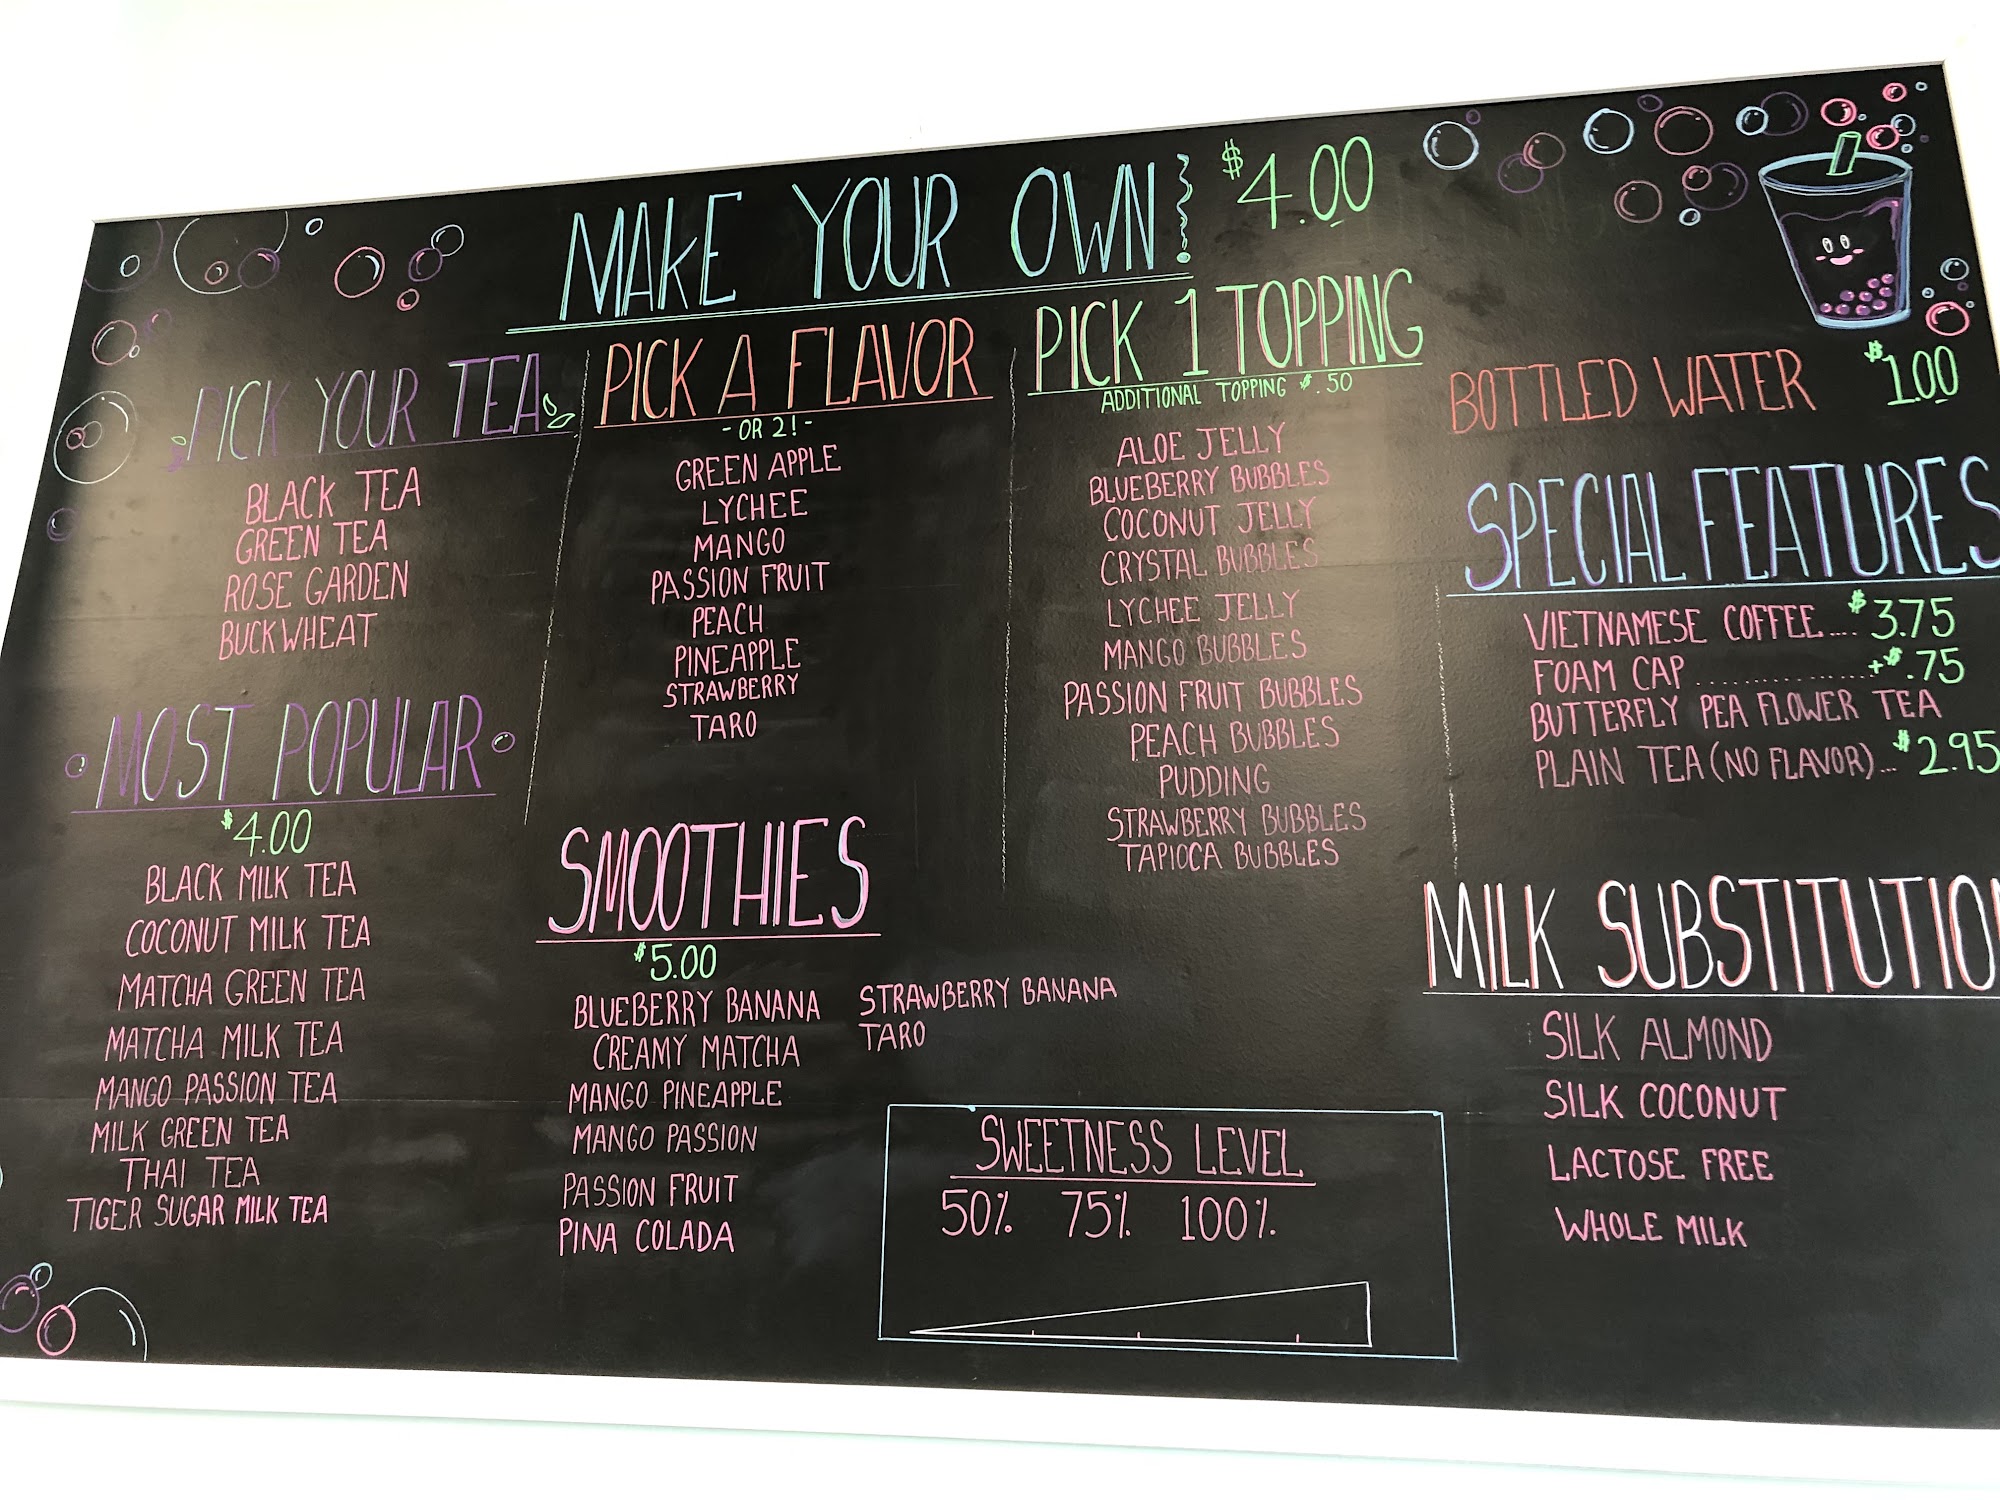 MAKE YOUR OWN! $4.00
PICK YOUR TEA
BLACK TEA
GREEN TEA
ROSE GARDEN
BUCKWHEAT
PICK A FLAVOR
- OR 2! -
GREEN APPLE
LYCHEE
MANGO
PASSION FRUIT
PEACH
PINEAPPLE
STRAWBERRY
TARO
PICK 1 TOPPING
ADDITIONAL TOPPING $.50
ALOE JELLY
BLUEBERRY BUBBLES
COCONUT JELLY
CRYSTAL BUBBLES
LYCHEE JELLY
MANGO BUBBLES
PASSION FRUIT BUBBLES
PEACH BUBBLES
PUDDING
STRAWBERRY BUBBLES
TAPIOCA BUBBLES
BOTTLED WATER $1.00
SPECIAL FEATURES
VIETNAMESE COFFEE.... $3.75
FOAM CAP ................... +$.75
BUTTERFLY PEA FLOWER TEA
PLAIN TEA (NO FLAVOR)... $2.95
MOST POPULAR
$4.00
BLACK MILK TEA
COCONUT MILK TEA
MATCHA GREEN TEA
MATCHA MILK TEA
MANGO PASSION TEA
MILK GREEN TEA
THAI TEA
TIGER SUGAR MILK TEA
SMOOTHIES
$5.00
BLUEBERRY BANANA
CREAMY MATCHA
MANGO PINEAPPLE
MANGO PASSION
PASSION FRUIT
PINA COLADA
STRAWBERRY BANANA
TARO
SWEETNESS LEVEL
50% 75% 100%
MILK SUBSTITUTIO
SILK ALMOND
SILK COCONUT
LACTOSE FREE
WHOLE MILK